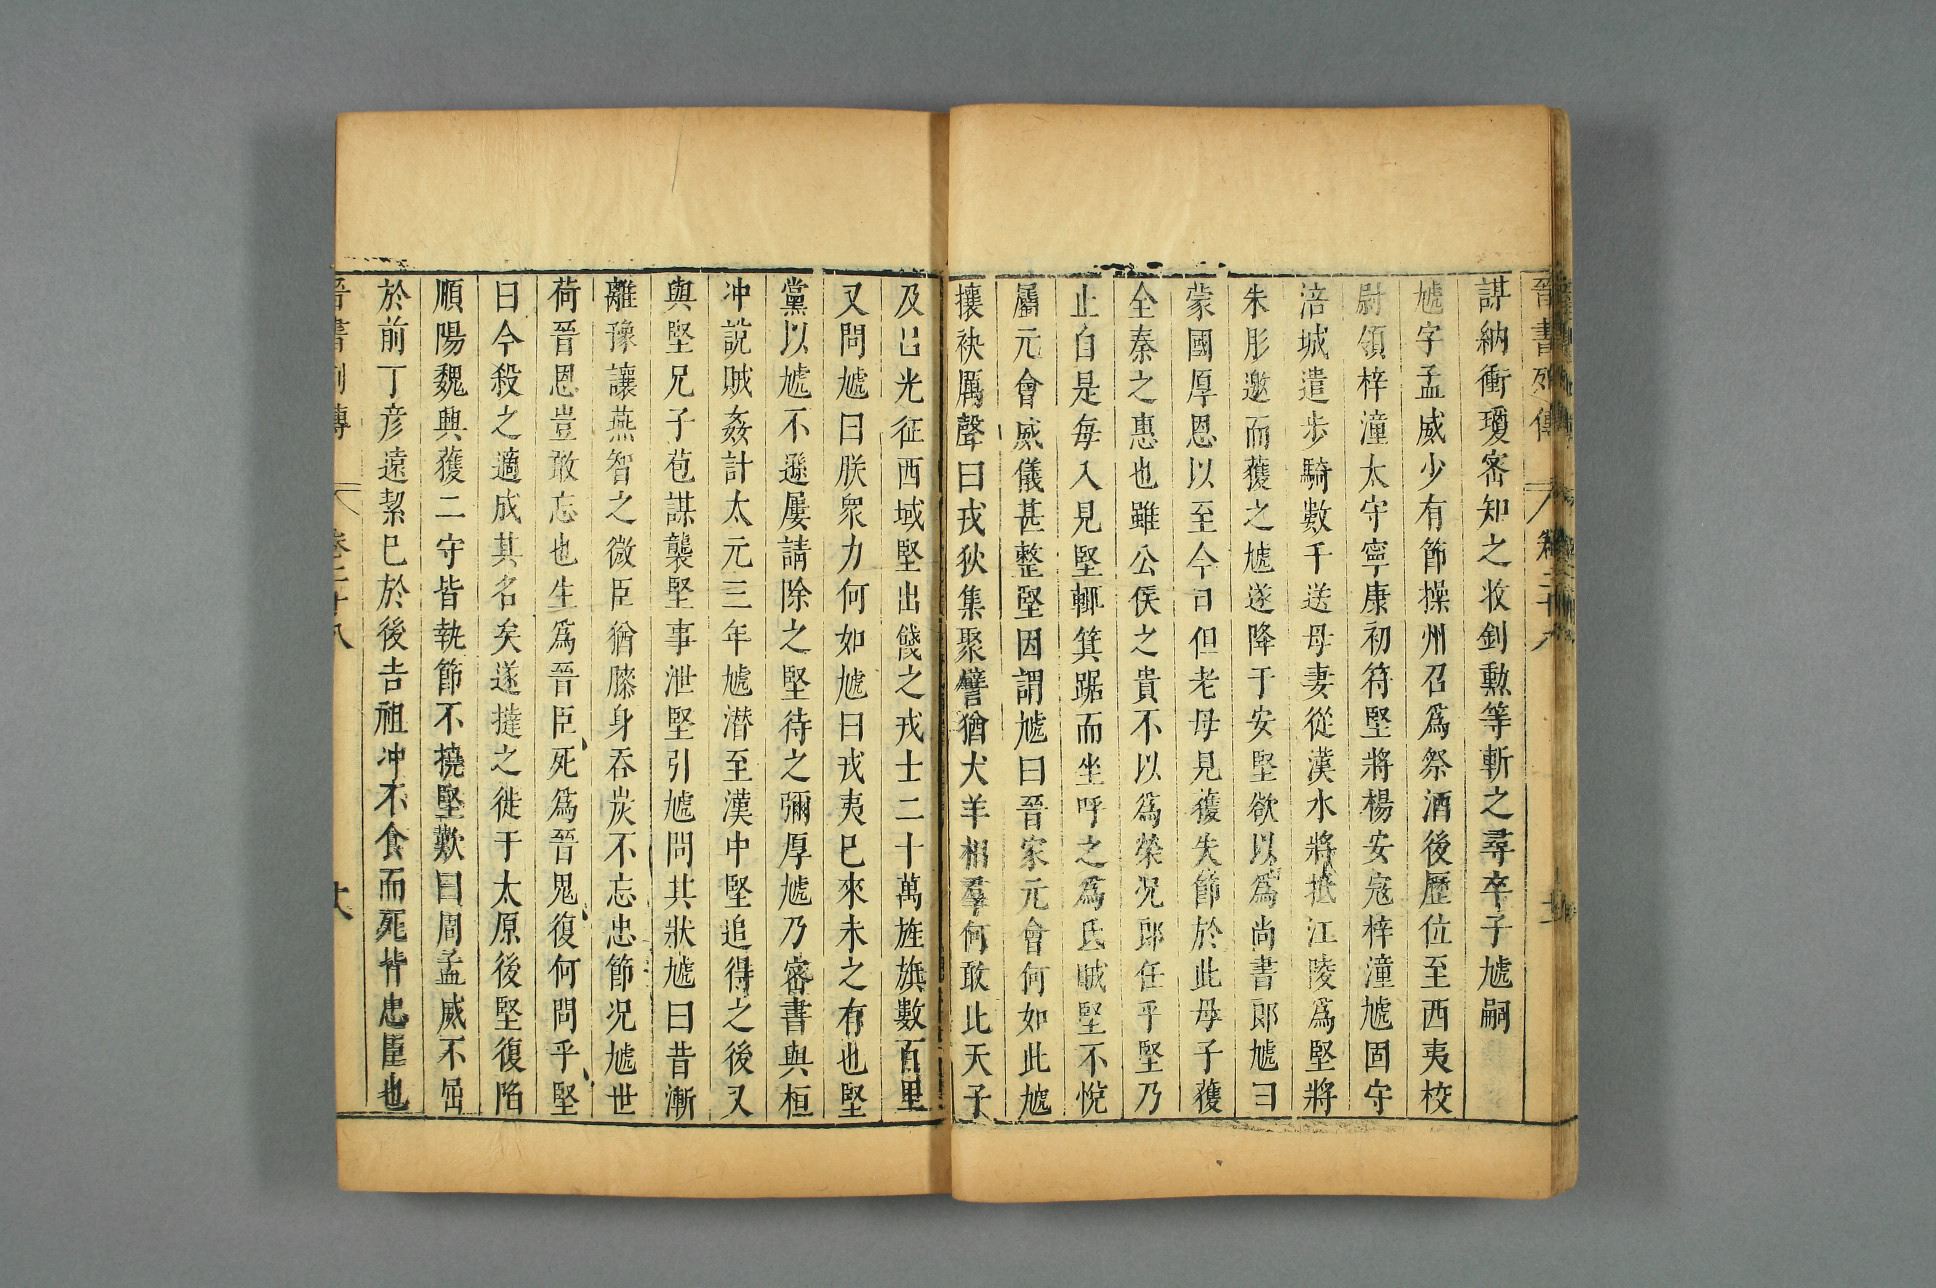 晉書列傳 卷二十八
謀納衝瓊密知之收釗勲等斬之尋卒子虓嗣
虓字孟威少有節操州召爲祭酒後歷位至西夷校
尉領梓潼太守寧康初符堅將楊安寇梓潼虓固守
涪城遣步騎數千送母妻從漢水將抵江陵爲堅將
朱彤邀而獲之虓遂降于安堅欲以爲尚書郎虓曰
蒙國厚恩以至今日但老母見獲失節於此母子獲
全秦之惠也雖公侯之貴不以爲榮况郎任乎堅乃
止自是每入見堅輒箕踞而坐呼之爲氐賊堅不悅
屬元會威儀甚整堅因謂虓曰晉家元會何如此虓
攘袂厲聲曰戎狄集聚譬猶犬羊相羣何敢比天子
及呂光征西域堅出餞之戎士二十萬旌旗數百里
又問虓曰朕衆力何如虓曰戎夷巳來未之有也堅
黨以虓不遜屢請除之堅待之彌厚虓乃密書與桓
冲說賊姦計太元三年虓潜至漢中堅追得之後又
與堅兄子苞謀襲堅事泄堅引虓問其狀虓曰昔漸
離豫讓燕智之微臣猶漆身吞炭不忘忠節况虓世
荷晉恩豈敢忘也生爲晉臣死爲晉鬼復何問乎堅
曰今殺之適成其名矣遂撻之徙于太原後堅復陷
順陽魏興獲二守皆執節不撓堅歎曰周孟威不屈
於前丁彦遠絜巳於後吉祖冲不食而死皆忠臣也
晉書列傳 卷二十八